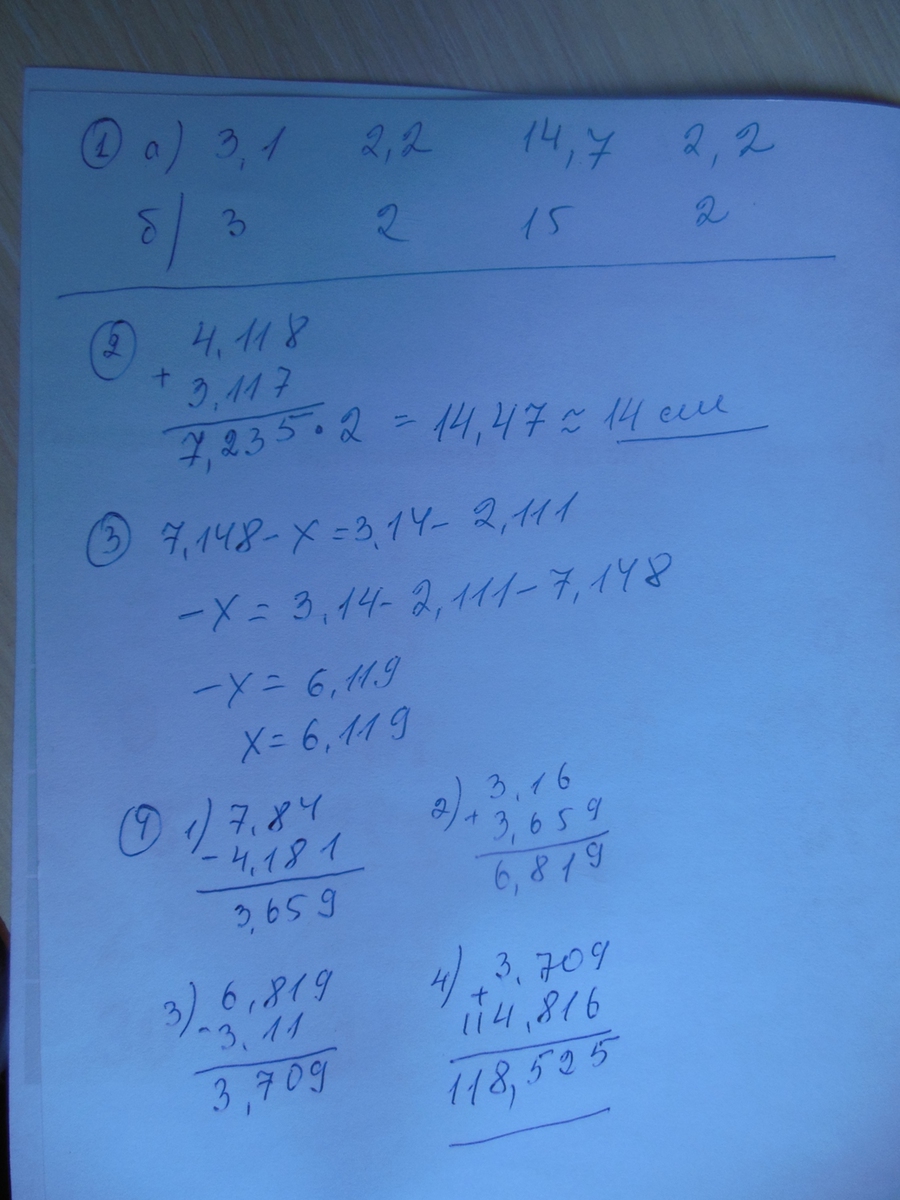 ① а) 3,1 2,2 14,7 2,2
б) 3 2 15 2
② 4,118
+ 3,117
7,235 · 2 = 14,47 ≈ 14 см
③ 7,148 - x = 3,14 - 2,111
-x = 3,14 - 2,111 - 7,148
-x = 6,119
x = 6,119
④ 1) 7,84
- 4,181
3,659
2) 3,16
+ 3,659
6,819
3) 6,819
- 3,11
3,709
4) 3,709
+ 114,816
118,525